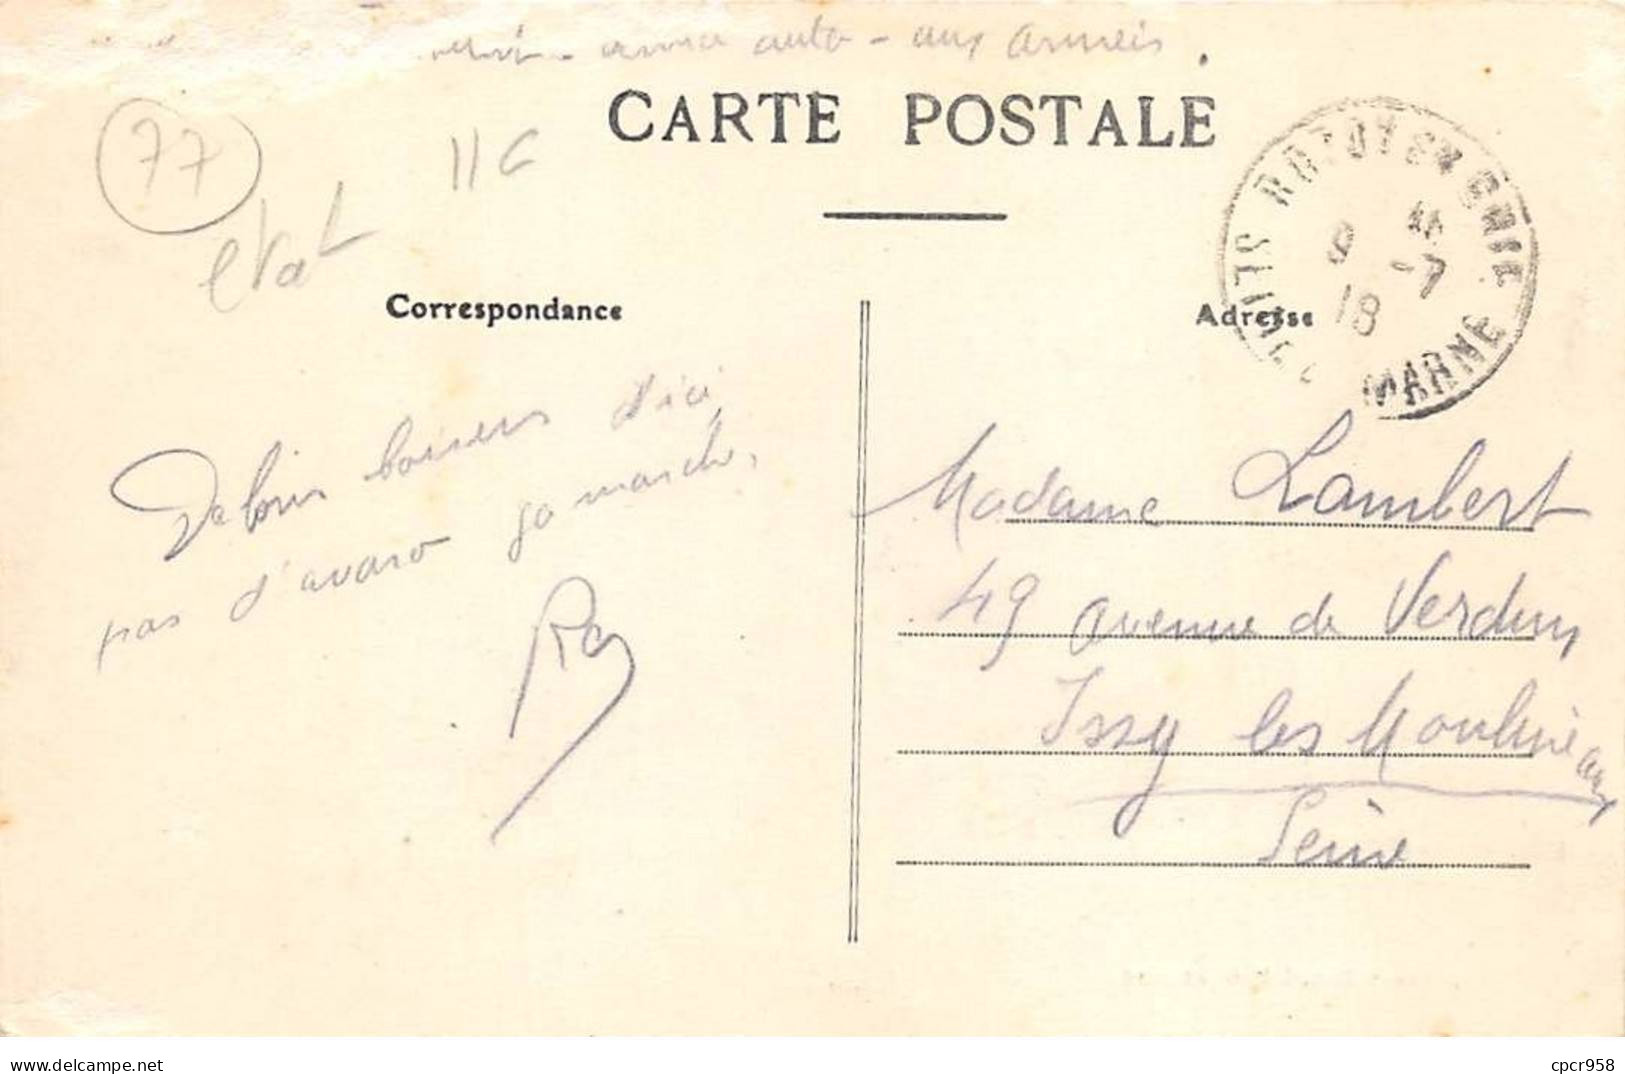 auto - aux armeés
CARTE POSTALE
77
11C
etat
ROZOY EN BRIE
8
-7
18
SEINE & MARNE
Correspondance
Adresse
De bons baisers d'ici
pas d'avaro ça marche,
Madame Lambert
49 avenue de Verdun
Issy les Moulineaux
Seine
https://www.delcampe.net
cpcr958